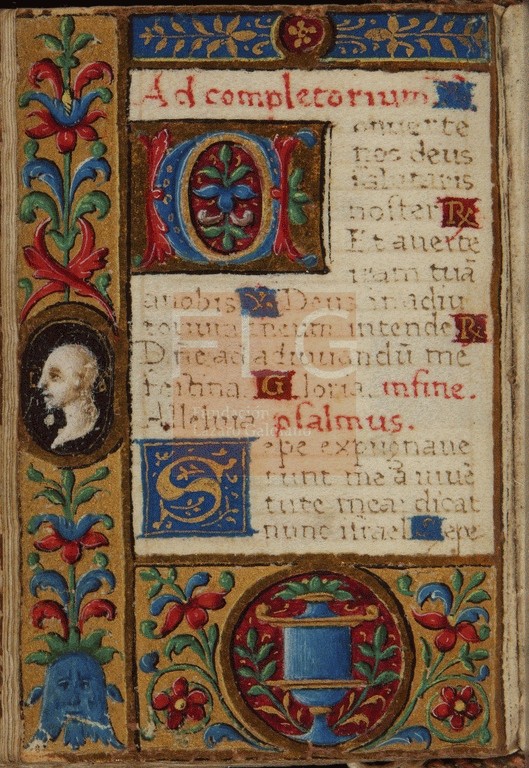 Ad completorium
Conuerte
nos deus
salutaris
noster R
Et auerte
iram tuã
anobis V Deus in adiu
toriu meum intende R
Dñe ad adiuuandũ me
festina. Gloria. in fine.
Alleluia psalmus.
Sepe expugnaue
runt me a iuuẽ
tute mea: dicat
nunc israel Sepe
FLG
Fundación